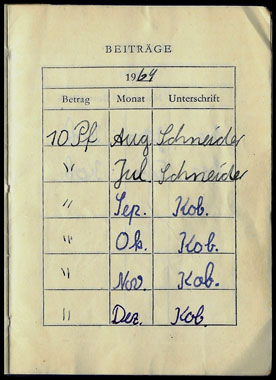 BEITRÄGE
1964
Betrag Monat Unterschrift
10 Pf Aug Schneider
" Jul Schneider
" Sep. Kob.
" Ok. Kob.
" Nov. Kob.
" Dez. Kob.